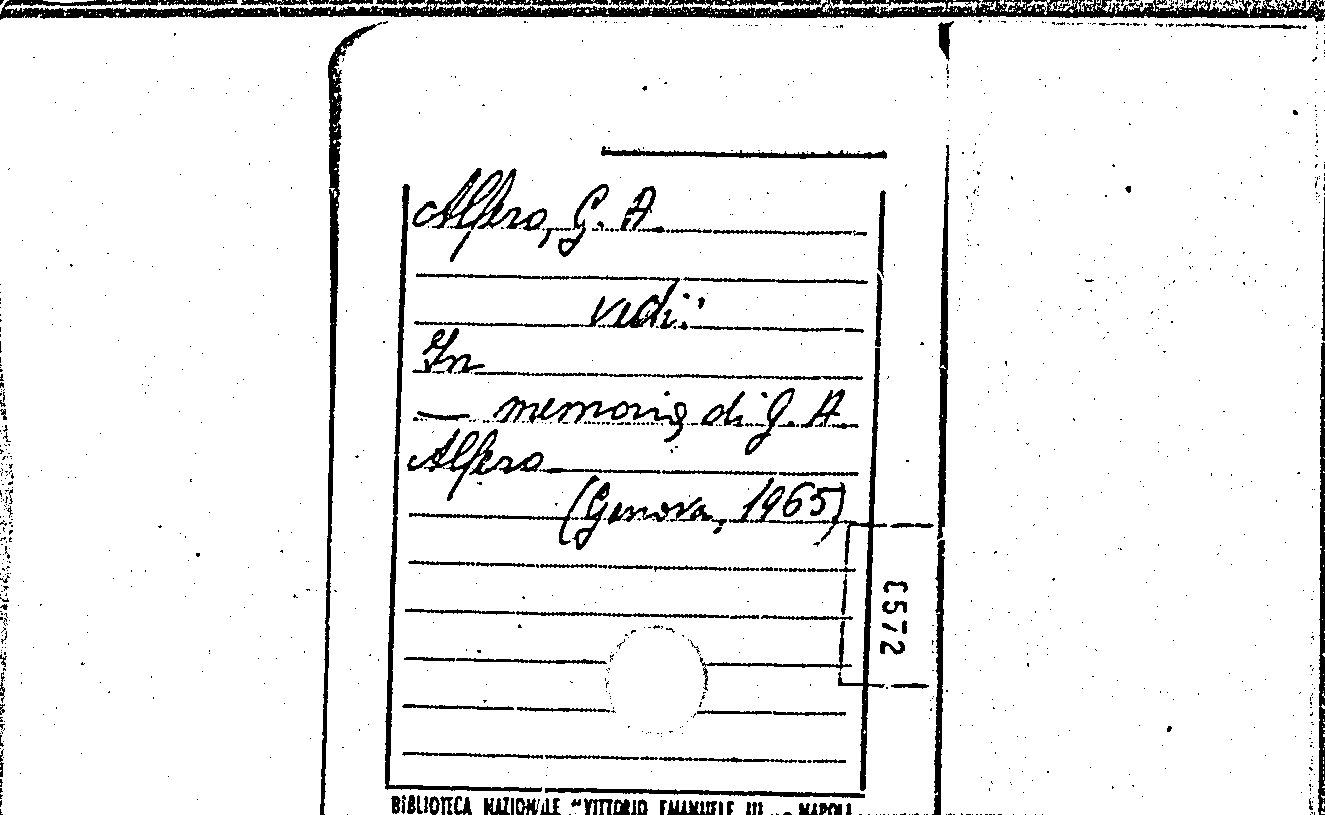 Alfero, G. A.
vedi:
In
— memoria di G. A.
Alfero
(Genova, 1965)
C572
BIBLIOTECA NAZIONALE "VITTORIO EMANUELE III" - NAPOLI